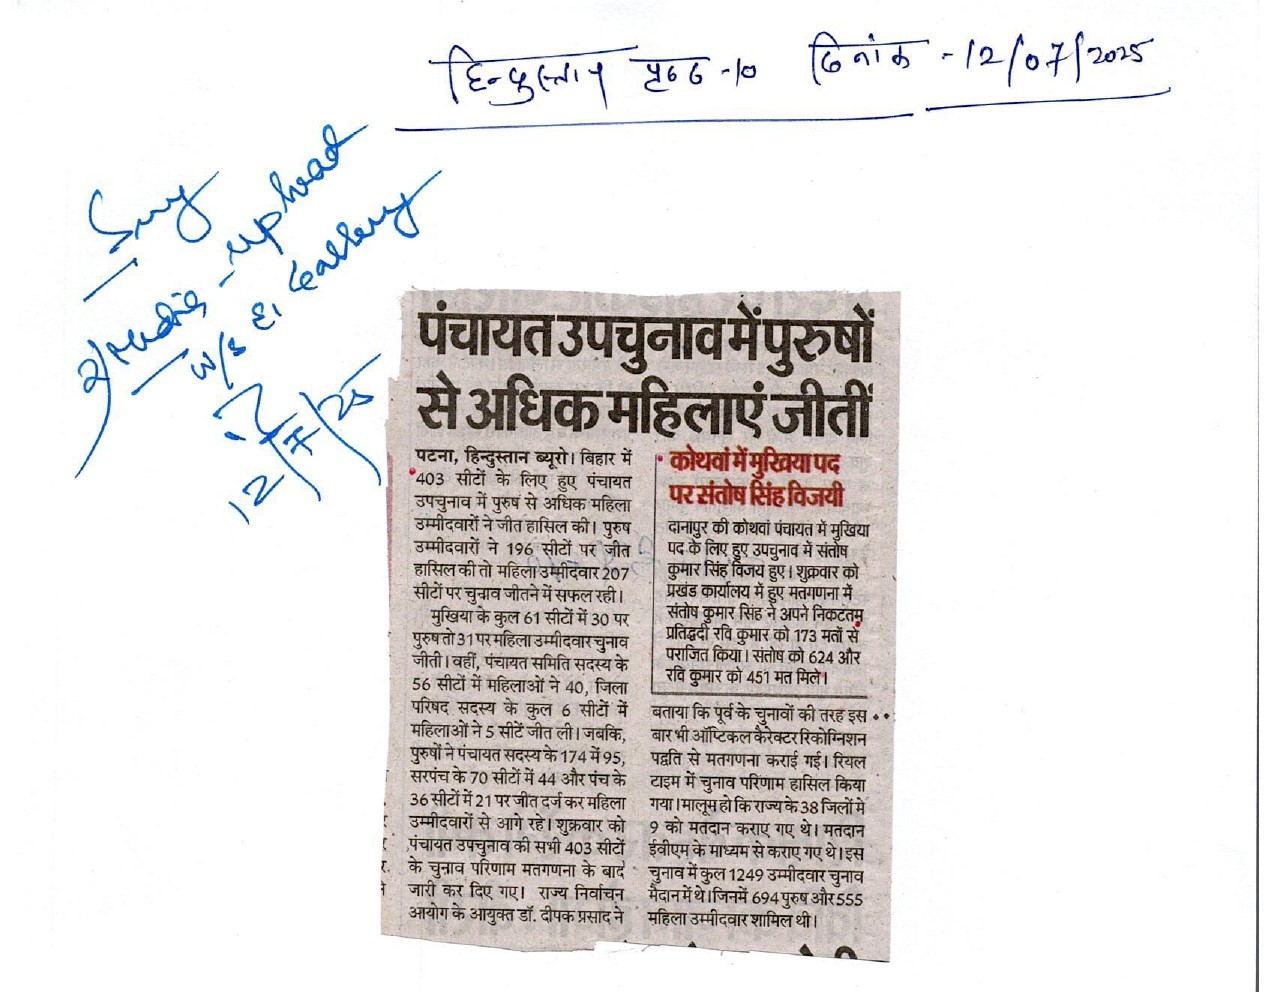 हिन्दुस्तान पृष्ठ -10 दिनांक - 12/07/2025
upload
12/7/25
पंचायत उपचुनाव में पुरुषों
से अधिक महिलाएं जीतीं
पटना, हिन्दुस्तान ब्यूरो। बिहार में
403 सीटों के लिए हुए पंचायत
उपचुनाव में पुरुष से अधिक महिला
उम्मीदवारों ने जीत हासिल की। पुरुष
उम्मीदवारों ने 196 सीटों पर जीत
हासिल की तो महिला उम्मीदवार 207
सीटों पर चुनाव जीतने में सफल रही।
मुखिया के कुल 61 सीटों में 30 पर
पुरुष तो 31 पर महिला उम्मीदवार चुनाव
जीती। वहीं, पंचायत समिति सदस्य के
56 सीटों में महिलाओं ने 40, जिला
परिषद सदस्य के कुल 6 सीटों में
महिलाओं ने 5 सीटें जीत ली। जबकि,
पुरुषों ने पंचायत सदस्य के 174 में 95,
सरपंच के 70 सीटों में 44 और पंच के
36 सीटों में 21 पर जीत दर्ज कर महिला
उम्मीदवारों से आगे रहे। शुक्रवार को
पंचायत उपचुनाव की सभी 403 सीटों
के चुनाव परिणाम मतगणना के बाद
जारी कर दिए गए। राज्य निर्वाचन
आयोग के आयुक्त डॉ. दीपक प्रसाद ने
कोथवां में मुखिया पद
पर संतोष सिंह विजयी
दानापुर की कोथवां पंचायत में मुखिया
पद के लिए हुए उपचुनाव में संतोष
कुमार सिंह विजय हुए। शुक्रवार को
प्रखंड कार्यालय में हुए मतगणना में
संतोष कुमार सिंह ने अपने निकटतम
प्रतिद्वदी रवि कुमार को 173 मतों से
पराजित किया। संतोष को 624 और
रवि कुमार को 451 मत मिले।
बताया कि पूर्व के चुनावों की तरह इस
बार भी ऑप्टिकल कैरेक्टर रिकोग्निशन
पद्वति से मतगणना कराई गई। रियल
टाइम में चुनाव परिणाम हासिल किया
गया। मालूम हो कि राज्य के 38 जिलों मे
9 को मतदान कराए गए थे। मतदान
ईवीएम के माध्यम से कराए गए थे। इस
चुनाव में कुल 1249 उम्मीदवार चुनाव
मैदान में थे। जिनमें 694 पुरुष और 555
महिला उम्मीदवार शामिल थी।